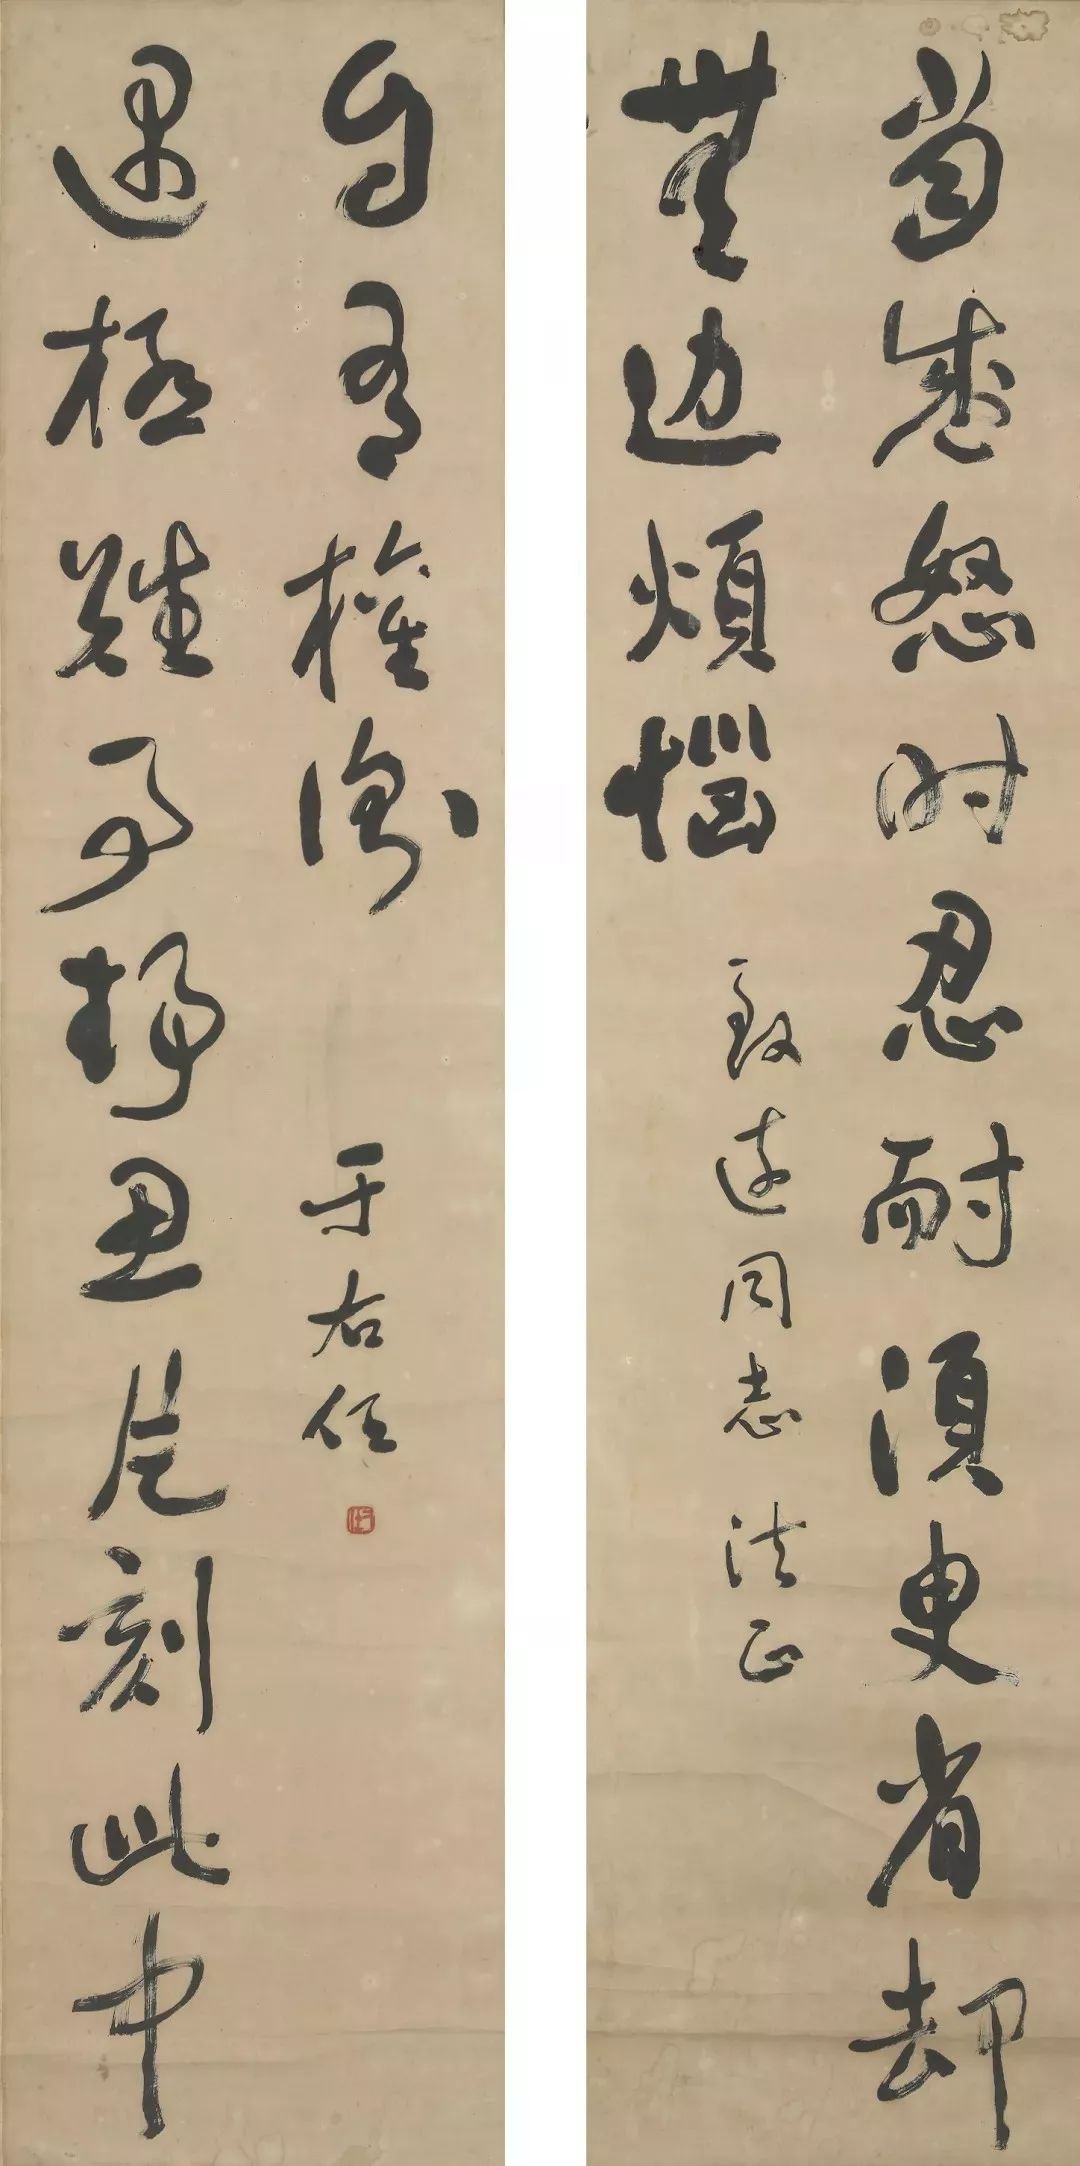 当盛怒时忍耐须臾省却
無边烦恼
致远同志 法正
遇极难事静思片刻此中
自有权衡
于右任